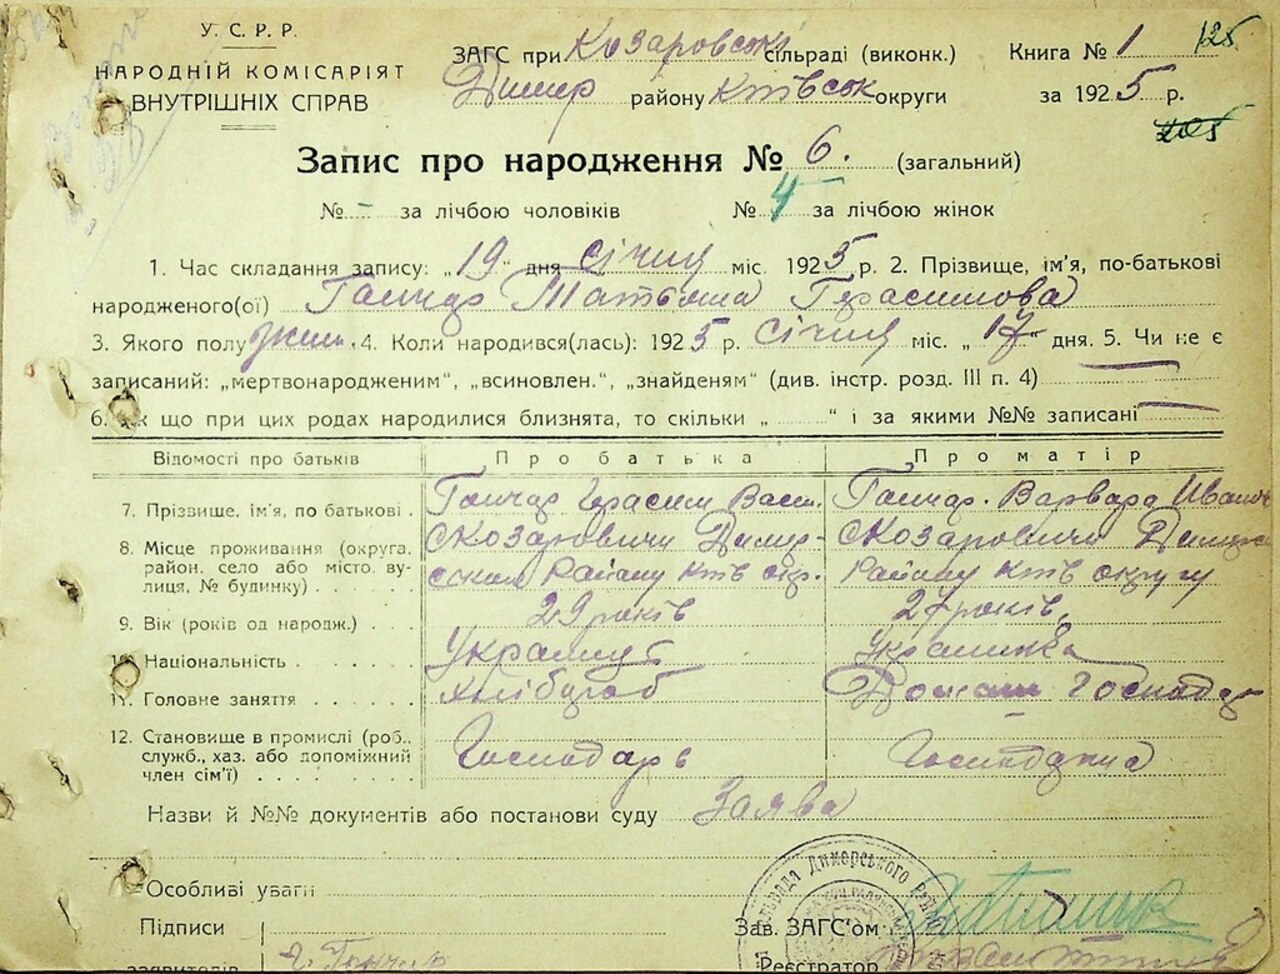 У. С. Р. Р.
НАРОДНІЙ КОМІСАРІЯТ
ВНУТРІШНІХ СПРАВ
ЗАГС при Козаровські сільраді (виконк.)
Димер району Київськ округи
Книга № 1 125
за 1925 р.
205
Запис про народження № 6. (загальний)
№ - за лічбою чоловіків № 4 за лічбою жінок
1. Час складання запису: „19" дня січня міс. 1925 р. 2. Прізвище, ім'я, по-батькові
народженого(ої) Гончар Татьяна Герасимова
3. Якого полу жін. 4. Коли народився(лась): 1925 р. Січня міс. „17" дня. 5. Чи не є
записаний: „мертвонародженим", „всиновлен.", „знайденям" (див. інстр. розд. III п. 4)
6. Як що при цих родах народилися близнята, то скільки „ " і за якими №№ записані
Відомості про батьків Про батька Про матір
7. Прізвище, ім'я, по батькові. Гончар Герасим Васил. Гончар. Варвара Иванов
8. Місце проживання (округа, район, село або місто, вулиця, № будинку) С Козаровичи Димерском Району Київ окр. С Козаровичи Димерск Району Київ округу
9. Вік (років од народж.) 29 років 27 років
10. Національність Украинец Украинка
11. Головне заняття хлібороб Домаш господар
12. Становище в промислі (роб., служб., хаз. або допоміжний член сім'ї) Господарь Господиня
Назви й №№ документів або постанови суду Заява
Особливі уваги
Підписи
заявителів Г. Гончар
Зав. ЗАГС'ом
Реєстратор
Димерського Райо